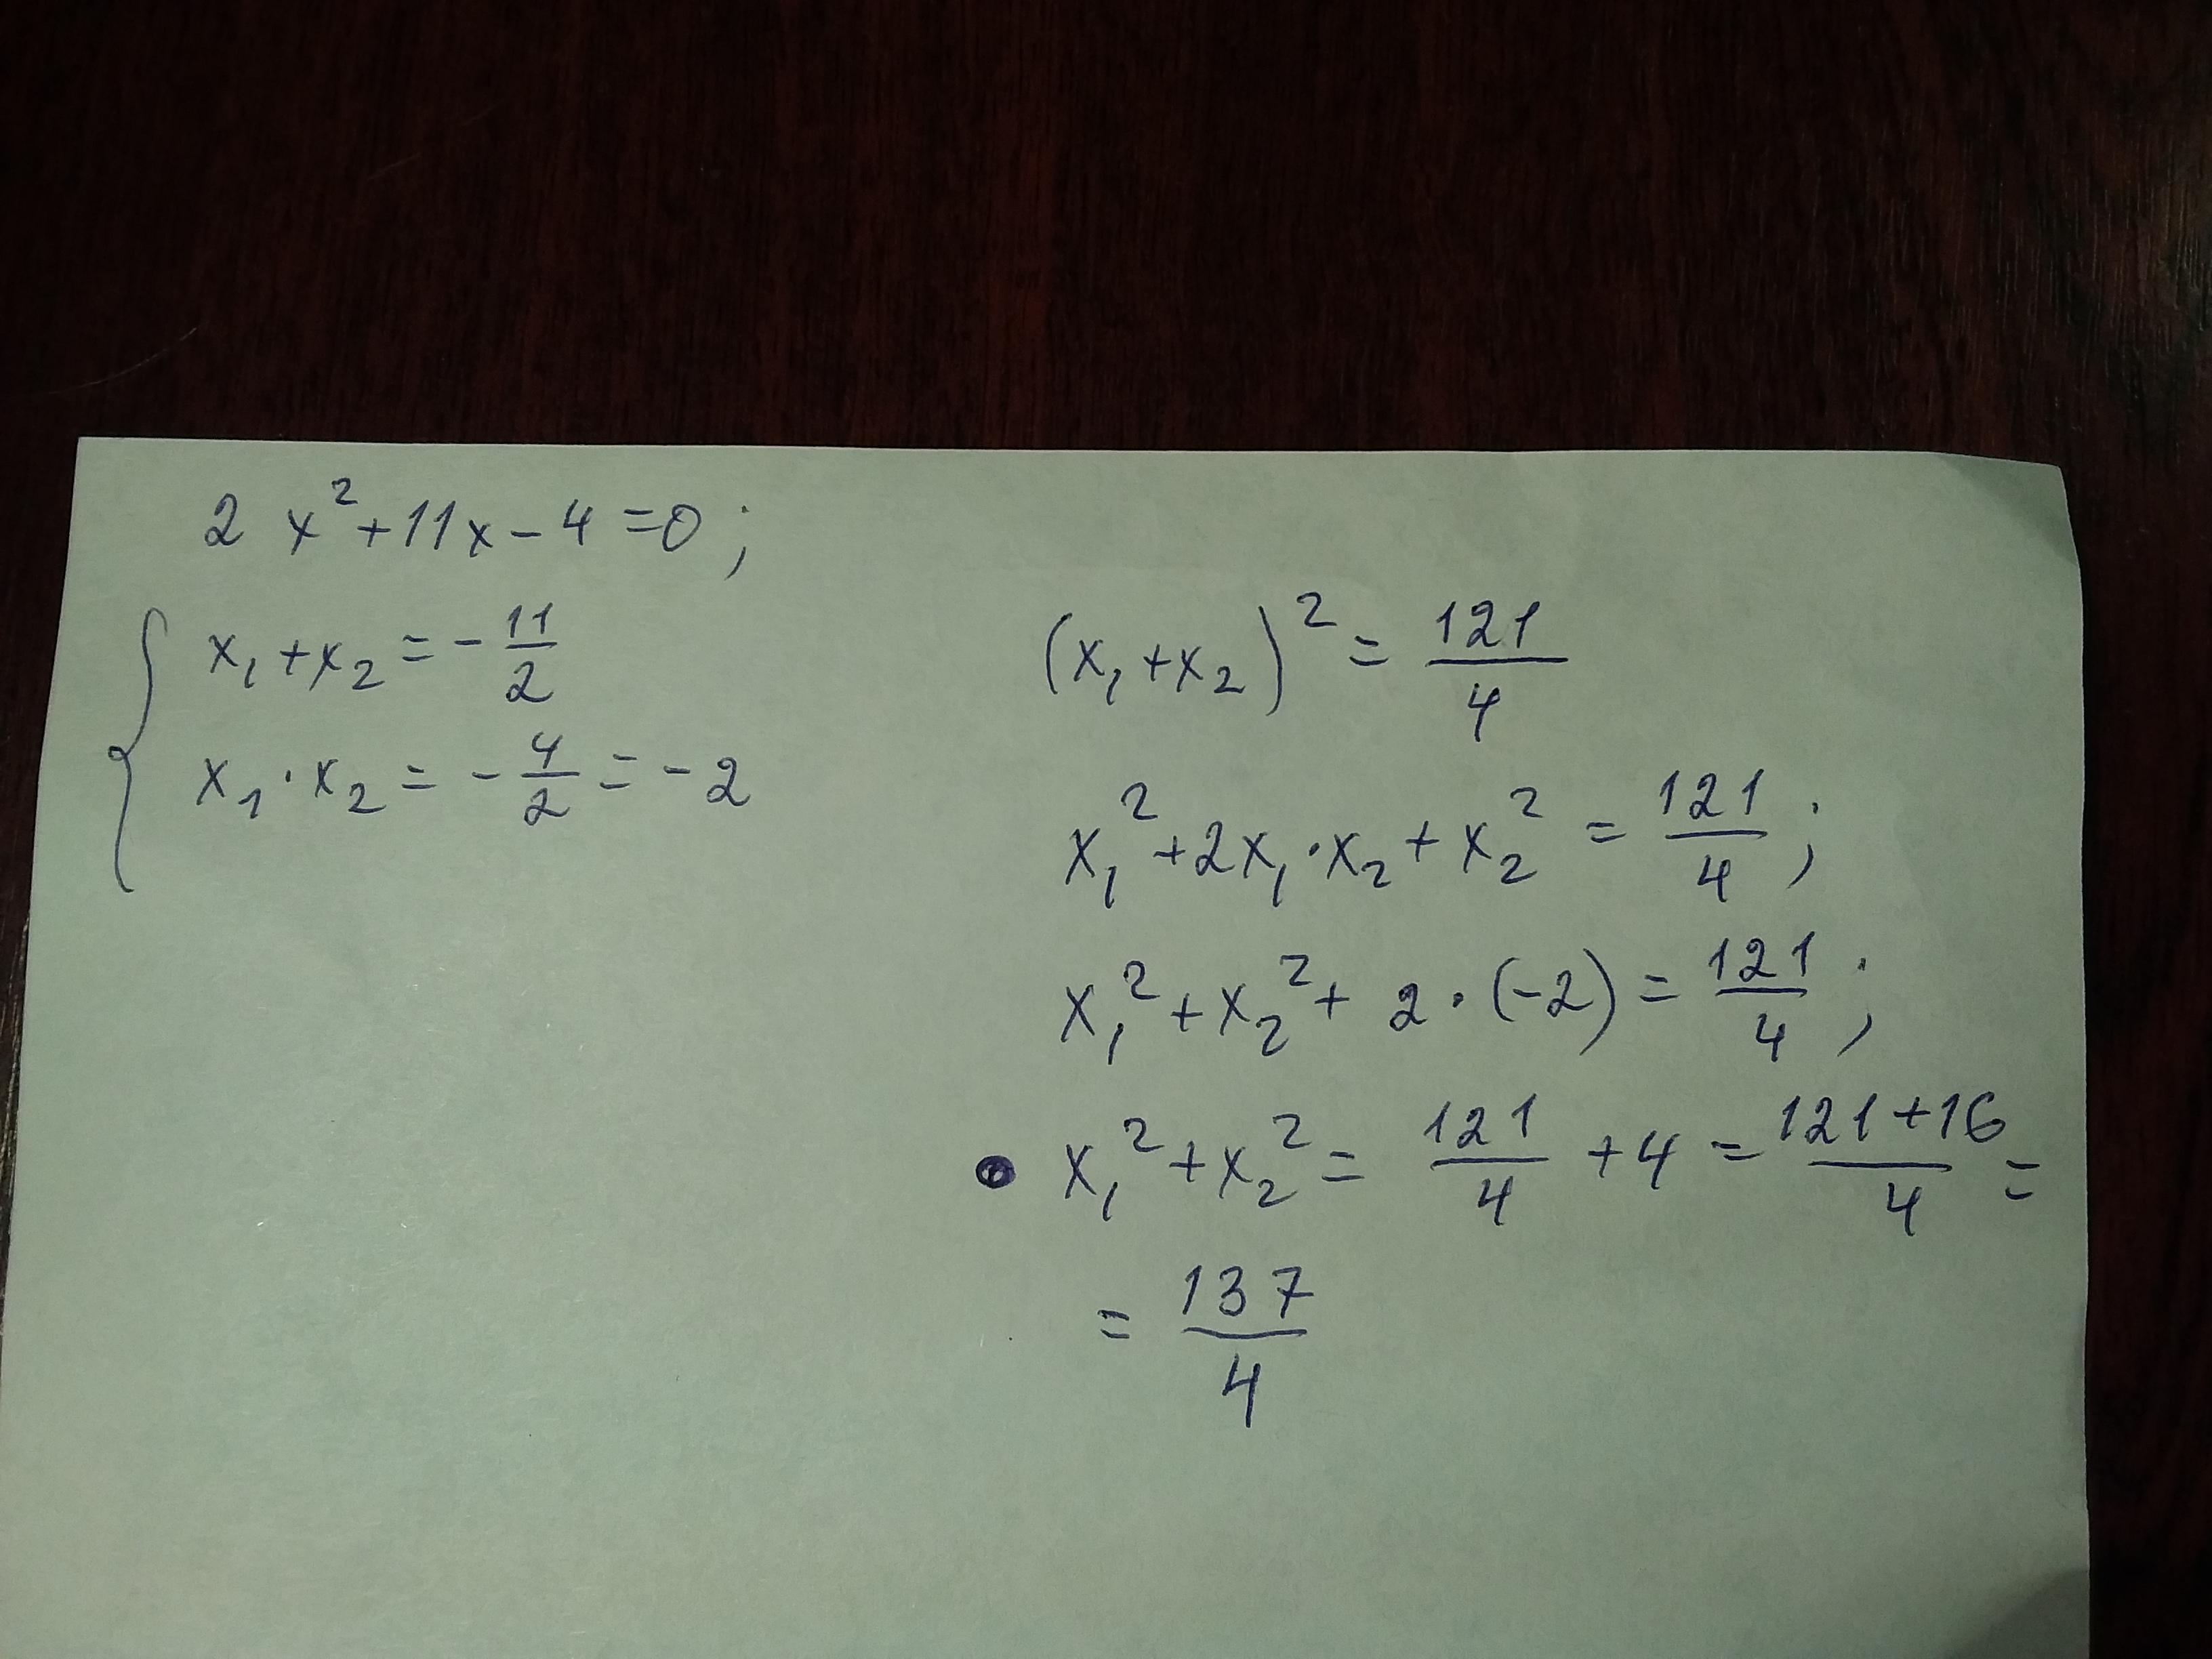 2 x² + 11x - 4 = 0;
x₁ + x₂ = - 11/2
x₁ · x₂ = - 4/2 = - 2
(x₁ + x₂)² = 121/4
x₁² + 2x₁ · x₂ + x₂² = 121/4;
x₁² + x₂² + 2 · (-2) = 121/4;
• x₁² + x₂² = 121/4 + 4 = (121 + 16)/4 =
= 137/4